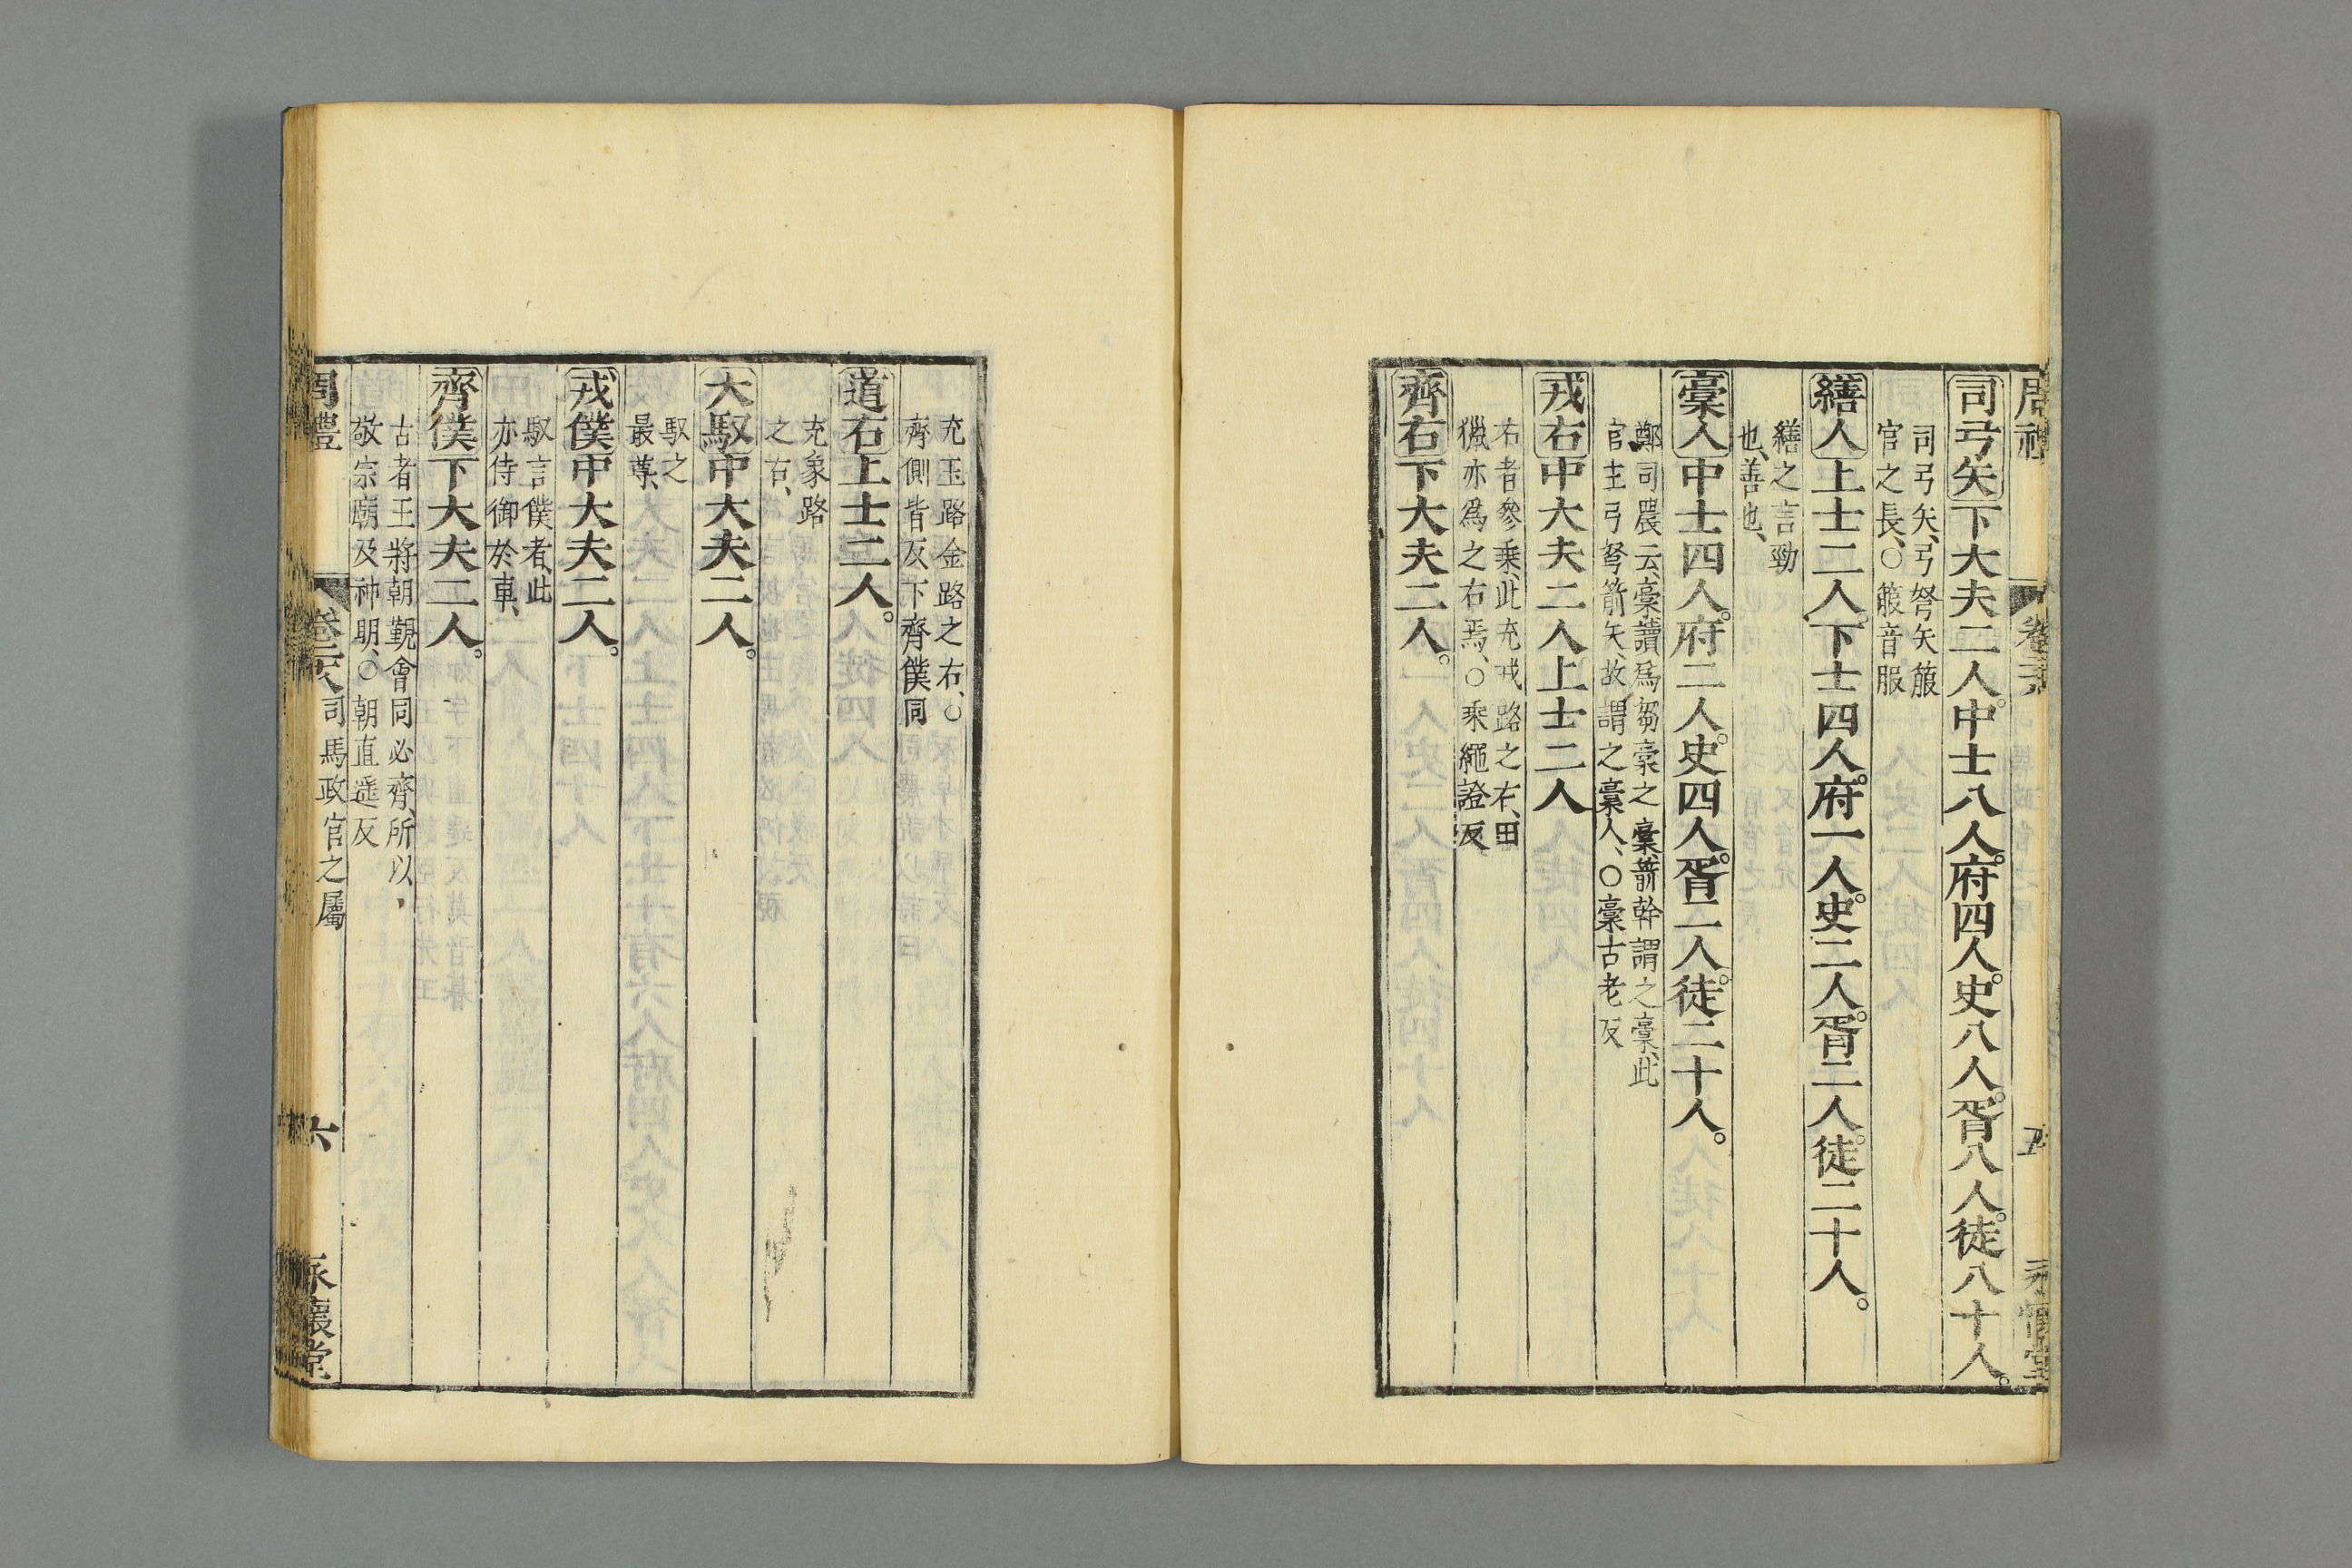 司弓矢下大夫二人。中士八人。府四人。史八人。胥八人。徒八十人。
司弓矢、弓弩矢箙
官之長、○箙音服
繕人上士二人。下士四人。府一人。史二人。胥二人。徒二十人。
繕之言勁
也、善也、
槀人中士四人。府二人。史四人。胥二人。徒二十人。
鄭司農云、槀讀爲芻槀之槀、箭幹謂之槀、此
官主弓弩箭矢、故謂之槀人、○槀古老反
戎右中大夫二人上士二人
右者參乗、此充戎路之右、田
獵亦爲之右焉、○乘繩證反
齊右下大夫二人。
充玉路金路之右、○
齊側皆反、下齊僕同
道右上士二人。
充象路
之右、
大馭中大夫二人。
馭之
最尊、
戎僕中大夫二人。
馭言僕者、此
亦侍御於車、
齊僕下大夫二人。
古者王將朝覲會同必齊、所以
敬宗廟及神明、○朝直遥反
周禮
卷二十八
司馬政官之屬
六
永懷堂